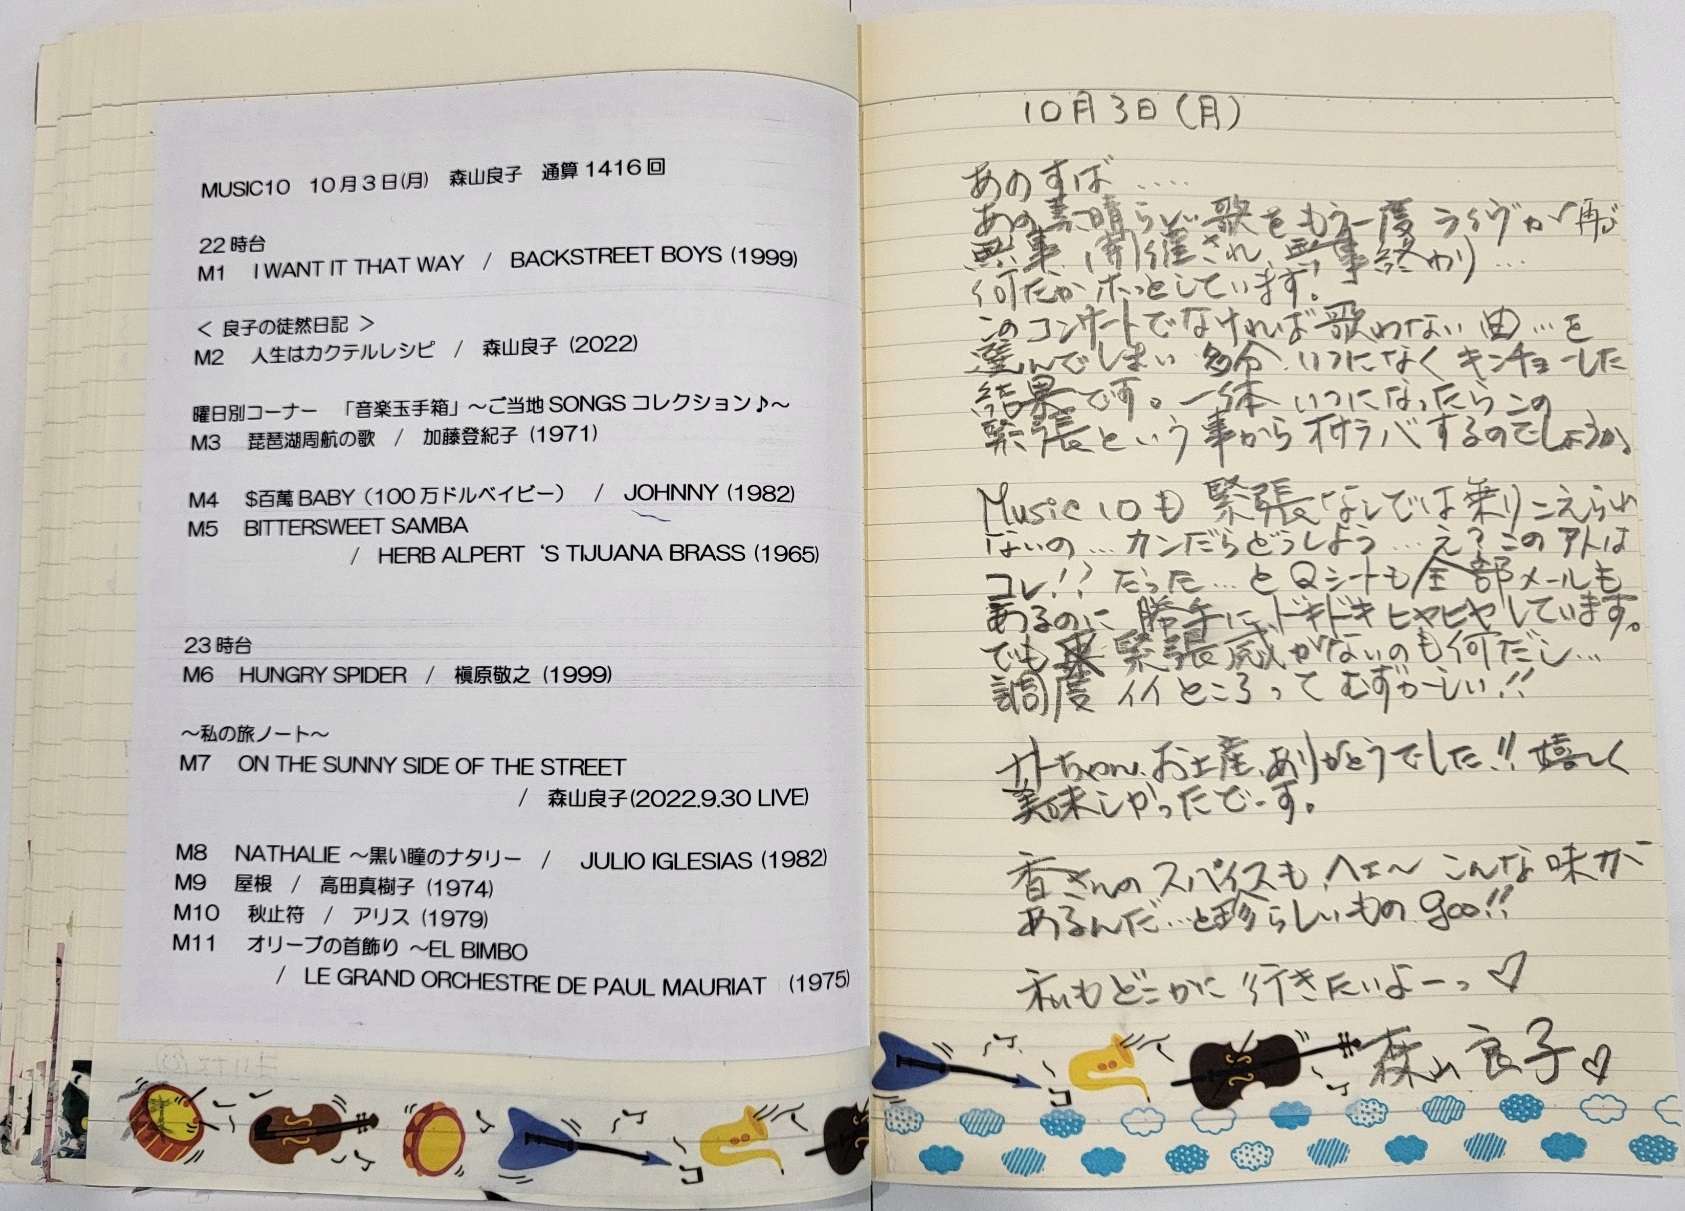 MUSIC10　10月3日(月)　森山良子　通算1416回
22時台
M1　I WANT IT THAT WAY　/　BACKSTREET BOYS (1999)
＜ 良子の徒然日記 ＞
M2　人生はカクテルレシピ　/　森山良子 (2022)
曜日別コーナー　「音楽玉手箱」～ご当地SONGSコレクション♪～
M3　琵琶湖周航の歌　/　加藤登紀子 (1971)
M4　$百萬BABY（100万ドルベイビー）　/　JOHNNY (1982)
M5　BITTERSWEET SAMBA
/　HERB ALPERT ‘S TIJUANA BRASS (1965)
23時台
M6　HUNGRY SPIDER　/　槇原敬之 (1999)
～私の旅ノート～
M7　ON THE SUNNY SIDE OF THE STREET
/　森山良子(2022.9.30 LIVE)
M8　NATHALIE ～黒い瞳のナタリー　/　JULIO IGLESIAS (1982)
M9　屋根　/　高田真樹子 (1974)
M10　秋止符　/　アリス (1979)
M11　オリーブの首飾り ～EL BIMBO
/　LE GRAND ORCHESTRE DE PAUL MAURIAT　(1975)
10月3日(月)
あのすば ‥‥
あの素晴らしい歌をもう一度 ライヴが 再び
無事 開催され、無事終わり…
何だかホッとしています。
このコンサートでなければ歌わない曲…を
選んでしまい 多分 いつになくキンチョーした
結果です。一体 いつになったらこの
緊張という事からオサラバするのでしょうか。
Music10も緊張なしでは乗りこえられ
ないの…カンだらどうしよう…え？このアトは
コレ!? だった…とQシートも全部メールも
あるのに 勝手にドキドキヒヤヒヤしています。
でも 緊張感がないのも何だし…
調度 イイところって むずかーしい!!
ちゃん、お土産、ありがとうでした!! 嬉しく
美味しかったでーす。
香さんのスパイスも、ヘェ～ こんな味が
あるんだ…と珍らしいもの goo!!
私もどこかに 行きたいよーっ♡
森山良子♡